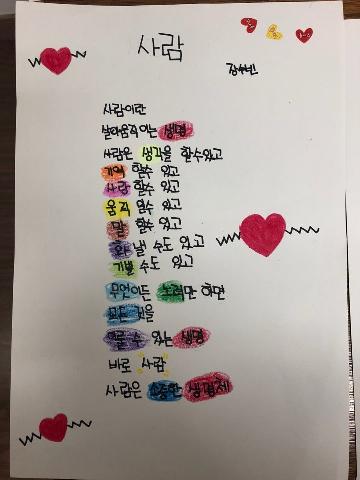 사람
장수빈
사람이란
살아움직이는 생명
사람은 생각을 할수있고
기억 할수 있고
사랑 할수 있고
움직 일수 있고
말 할수 있고
화 낼 수도 있고
기쁠 수도 있고
무엇이든 노력만 하면
모든 것을
이룰 수 있는 생명
바로 사람
사람은 소중한 생명체